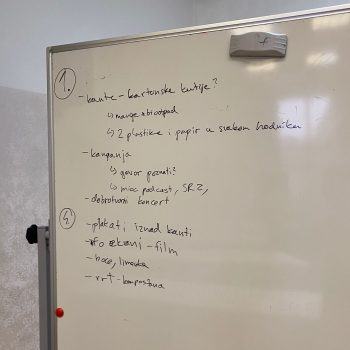 1.
- kante - kartonske kutije?
↳ manje za biootpad
↳ 2 plastike i papir u svakom hodniku
- kampanja
↳ govor poznati?
↳ mioc podcast, SRZ,
- dobrotvorni koncert
2.
- plakati iznad kanti
- ekrani - film
- boce, limenke
- vrt - kompostana